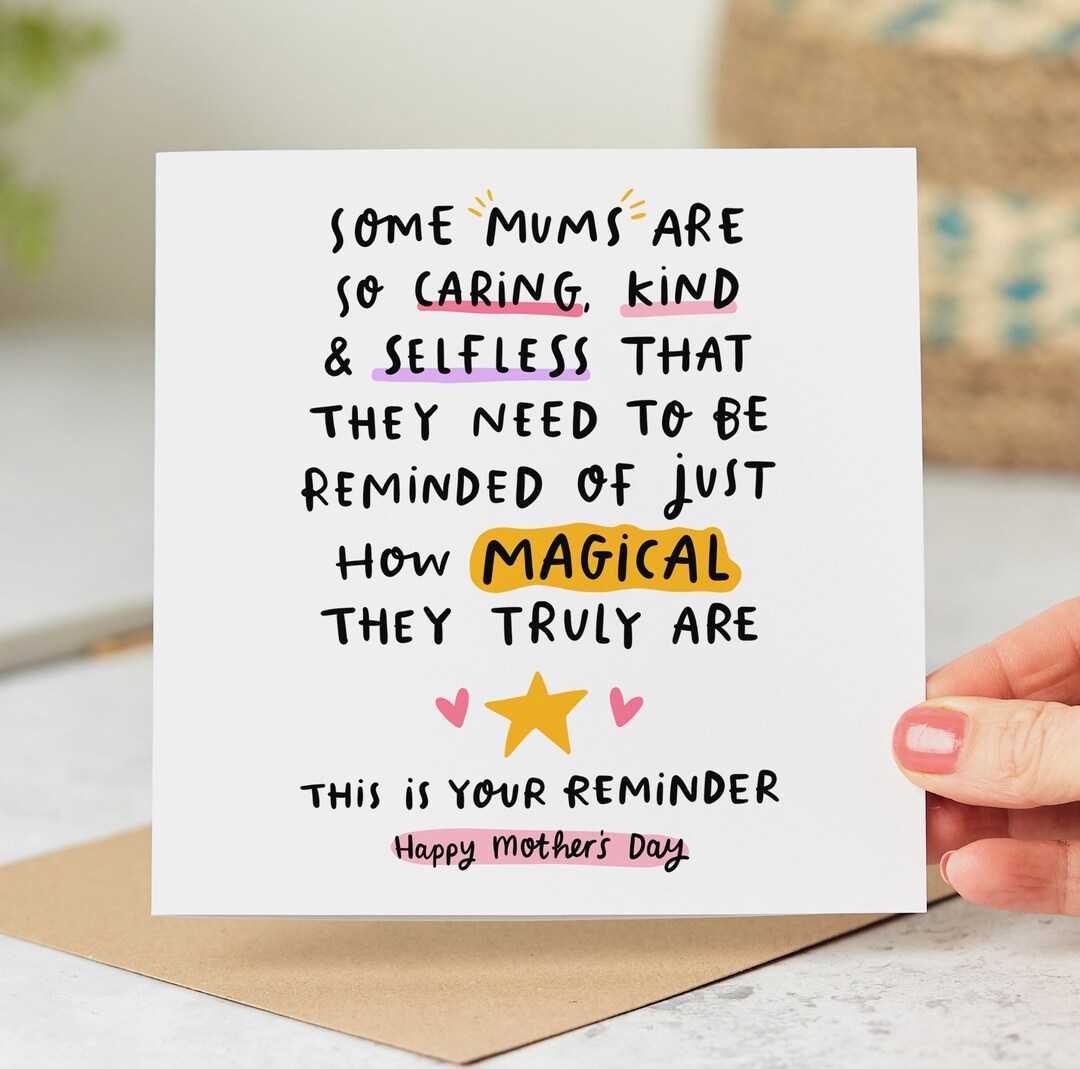 SOME MUMS ARE
SO CARING, KIND
& SELFLESS THAT
THEY NEED TO BE
REMINDED OF JUST
HOW MAGICAL
THEY TRULY ARE
THIS IS YOUR REMINDER
Happy Mother's Day